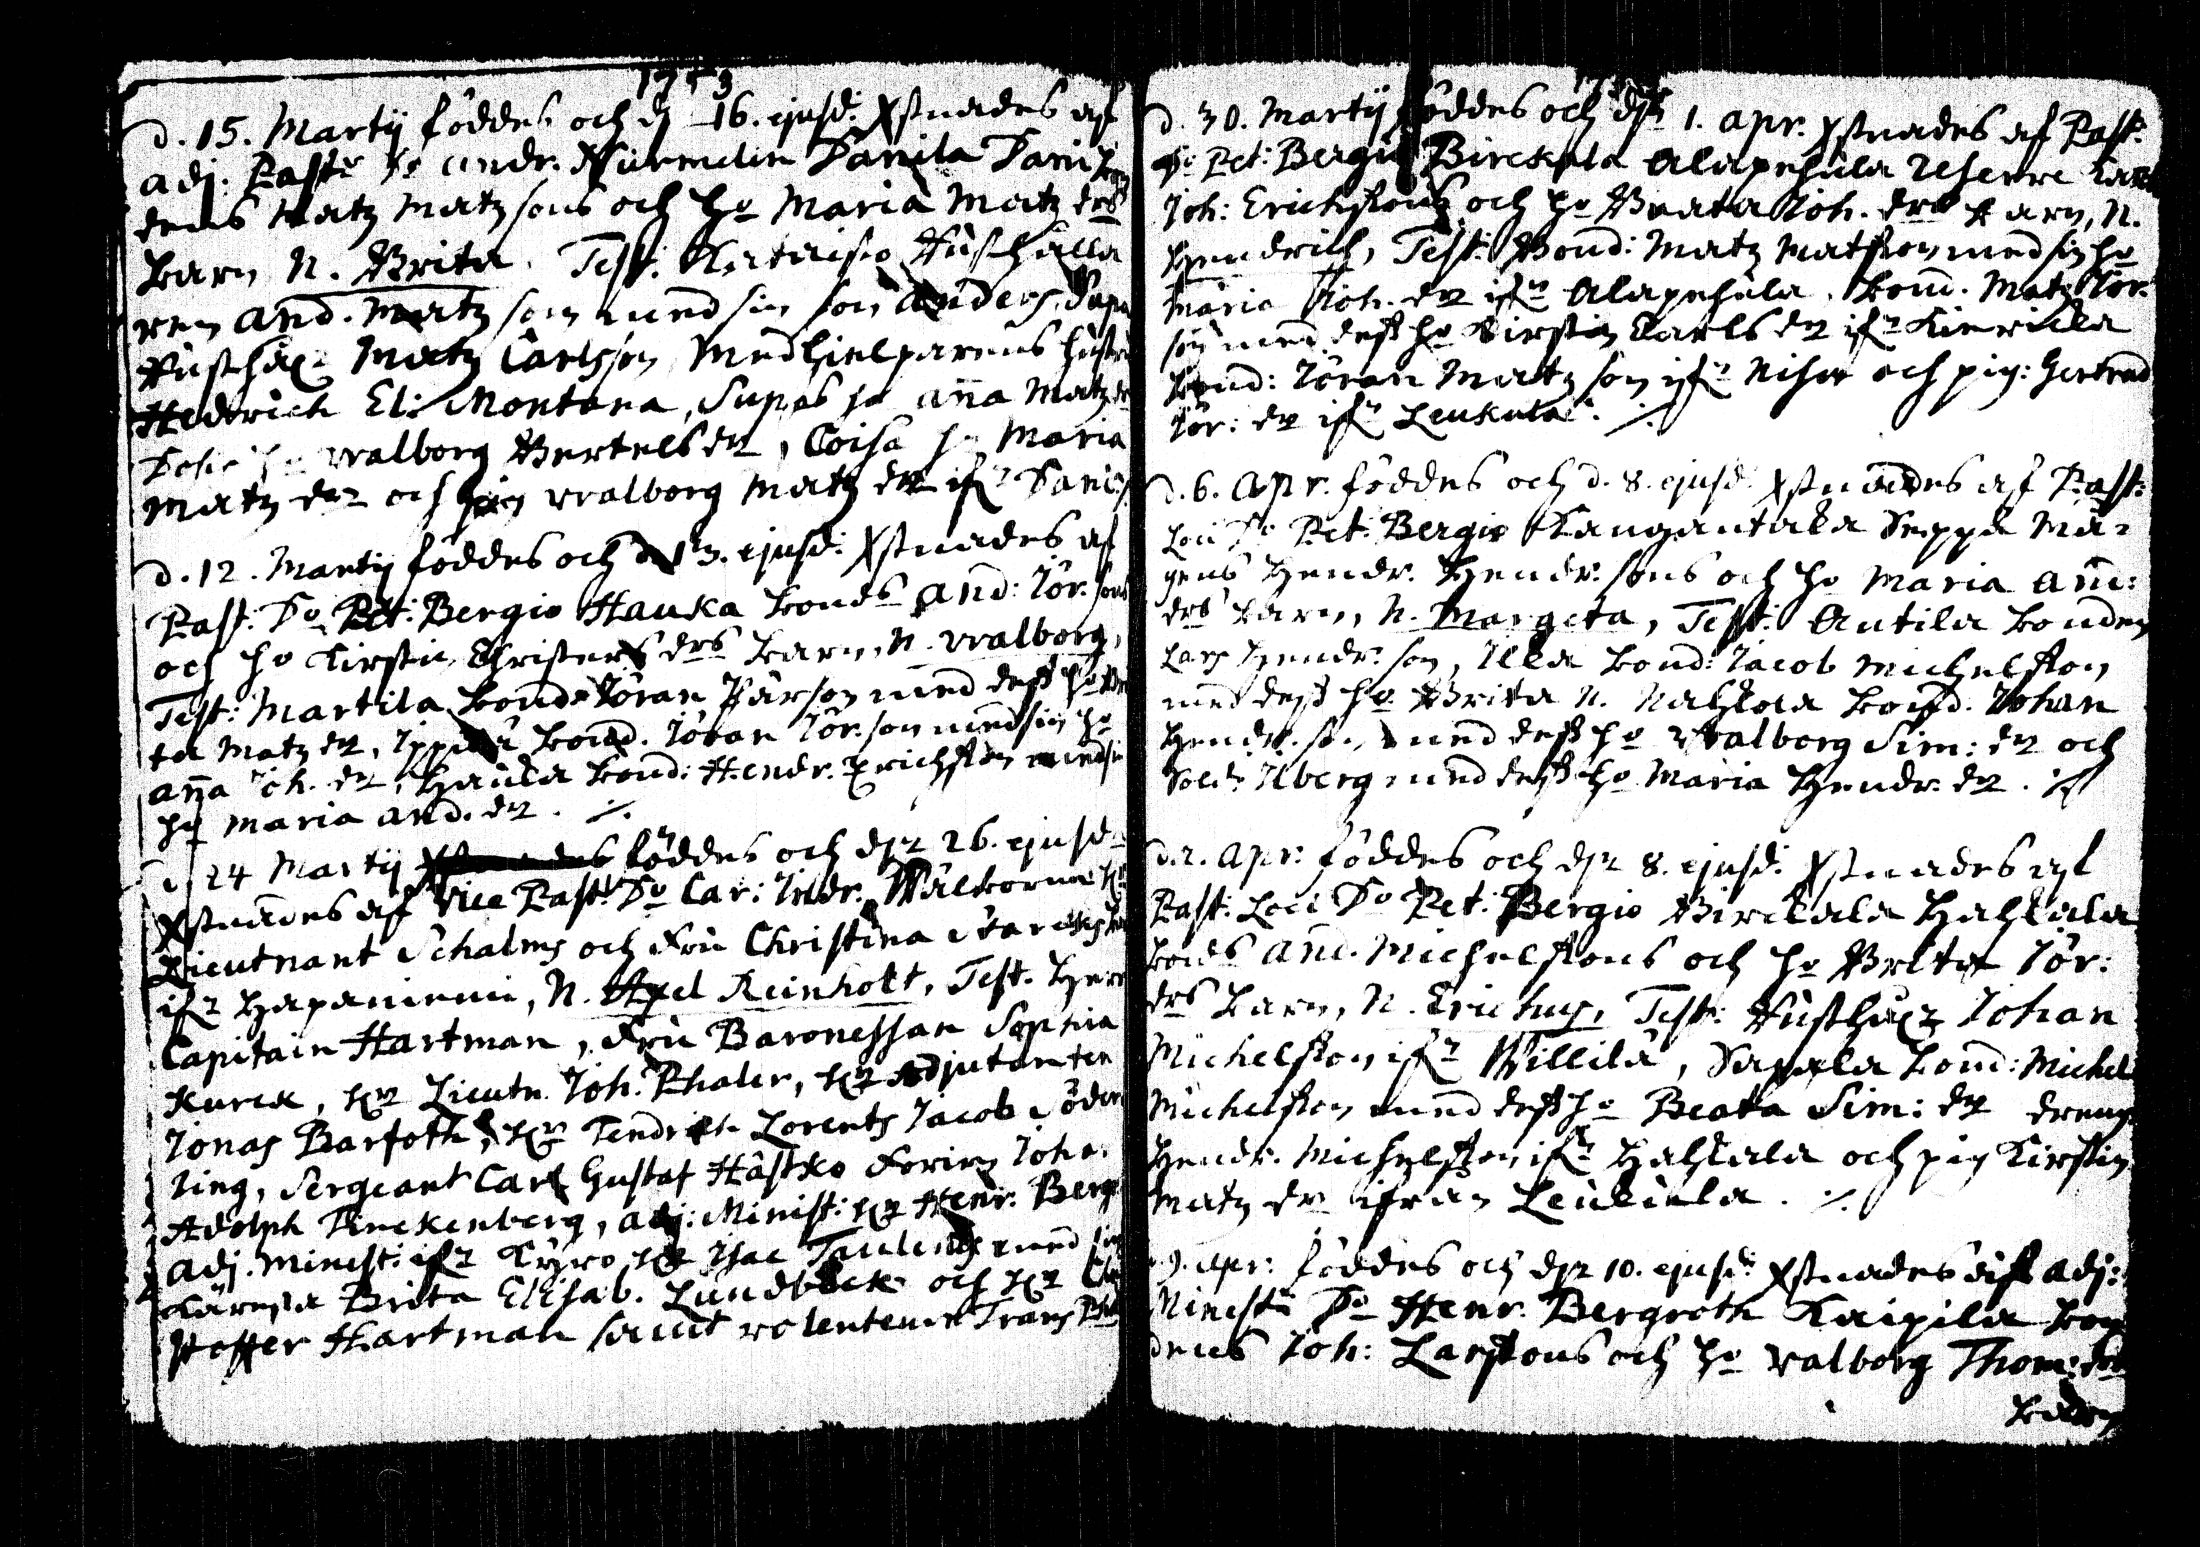 1753
d. 15. Martij föddes och d 16. ejusd: Xstnades af
adj: Past: Do Andr. Nurmelin Danila Dani
dens Matz Matzsons och ho Maria Matz drs
barn N. Brita. Test: Husholla
ren And. Matz son med sin son Anders,
Matz Carlsson, Medhielparens hustru
Hedwich El: Montana, Supas ho Anna Matz dr
ho Walborg Bertels dr, Coisa ho Maria
Matz dr och pig Walborg Matz dr ifr
d. 12. Martij föddes och d 13. ejusd: Xstnades af
Past: Do Pet: Bergio Hauka bonds And: Jör. sons
och ho Kirstin Christers drs barn, N. Walborg,
Test: Martila bond Jöran Pärson med dess ho
ta Matz dr, bond. Jöran Jör. son med sin ho
Anna Joh. dr, Haula bond: Hendr. Erichsson med sin
ho Maria And. dr. ./.
d 24 Martij föddes och d 26. ejusd
Xstnades af Vice Past: Do Car: Wälborne Hr
Lieutnant Schalms och Fru Christina
ifr Hapaniemi, N. Axel Reinholt, Test. Herr
Capitain Hartman, Fru Baronessan Sophia
Kurck, Hr Lieutn. Joh. Phaler, Hr Adjutanten
Jonas Barfoth, Hr Fendrich Lorentz Jacob Söder
ling, Sergeant Carl Gustaf Hästko Forirn Johan
Adolph Finckenberg, adj: Minist: Hr Henr. Berg
adj. Minist: ifr Kyro Hr Isac med sin
Käresta Brita Elisab. Lundbeck och Hr
Hartman samt
d. 30. Martij föddes och d 1. Apr. Xstnades af Past:
Do Pet: Bergio Birckala Alapehula Reserve Karl
Joh: Erichssons och ho Beata Joh. drs barn, N.
Hendrich, Test: Bond: Matz Matsson med sin ho
Maria Joh. dr ifr Alapehula. bond. Matz Jör.
son med dess ho Kirstin Carls dr ifr
bond: Jöran Matz son ifr och pig: Gertrud
Jör: dr ifr Leukula. ./.
d. 6. Apr. föddes och d. 8. ejusd Xstnades af Past:
Loci Do Pet: Bergio Kangantaka Seppä Mä-
gens Hendr. Hendr. sons och ho Maria And:
drs barn, N. Margeta, Test: Antila bonden
Lars Hendr. son, Illa bond: Jacob Michelsson
med dess ho Brita N. bond. Johan
Hendr. son med dess ho Walborg Sim: dr och
Sold: Ilberg med dess ho Maria Hendr. dr. ./.
d. 2. Apr. föddes och d 8. ejusd: Xstnades af
Past: Loci Do Pet: Bergio Birckala Hahkala
bonds And. Michelssons och ho Brita Jör:
drs barn, N. Erichus, Test: Johan
Michelsson ifr Willilä, bond: Michel
Michelsson med dess ho Beata Sim: dr dreng
Hendr. Michelsson ifr Hahkala och pig Kirstin
Matz dr ifrån. ./.
9. Apr: föddes och d 10. ejusd: Xstnades af adj:
Minist: Do Henr. Bergroth Kaipila bon
dens Joh: Larssons och ho Walborg Thom:
barn